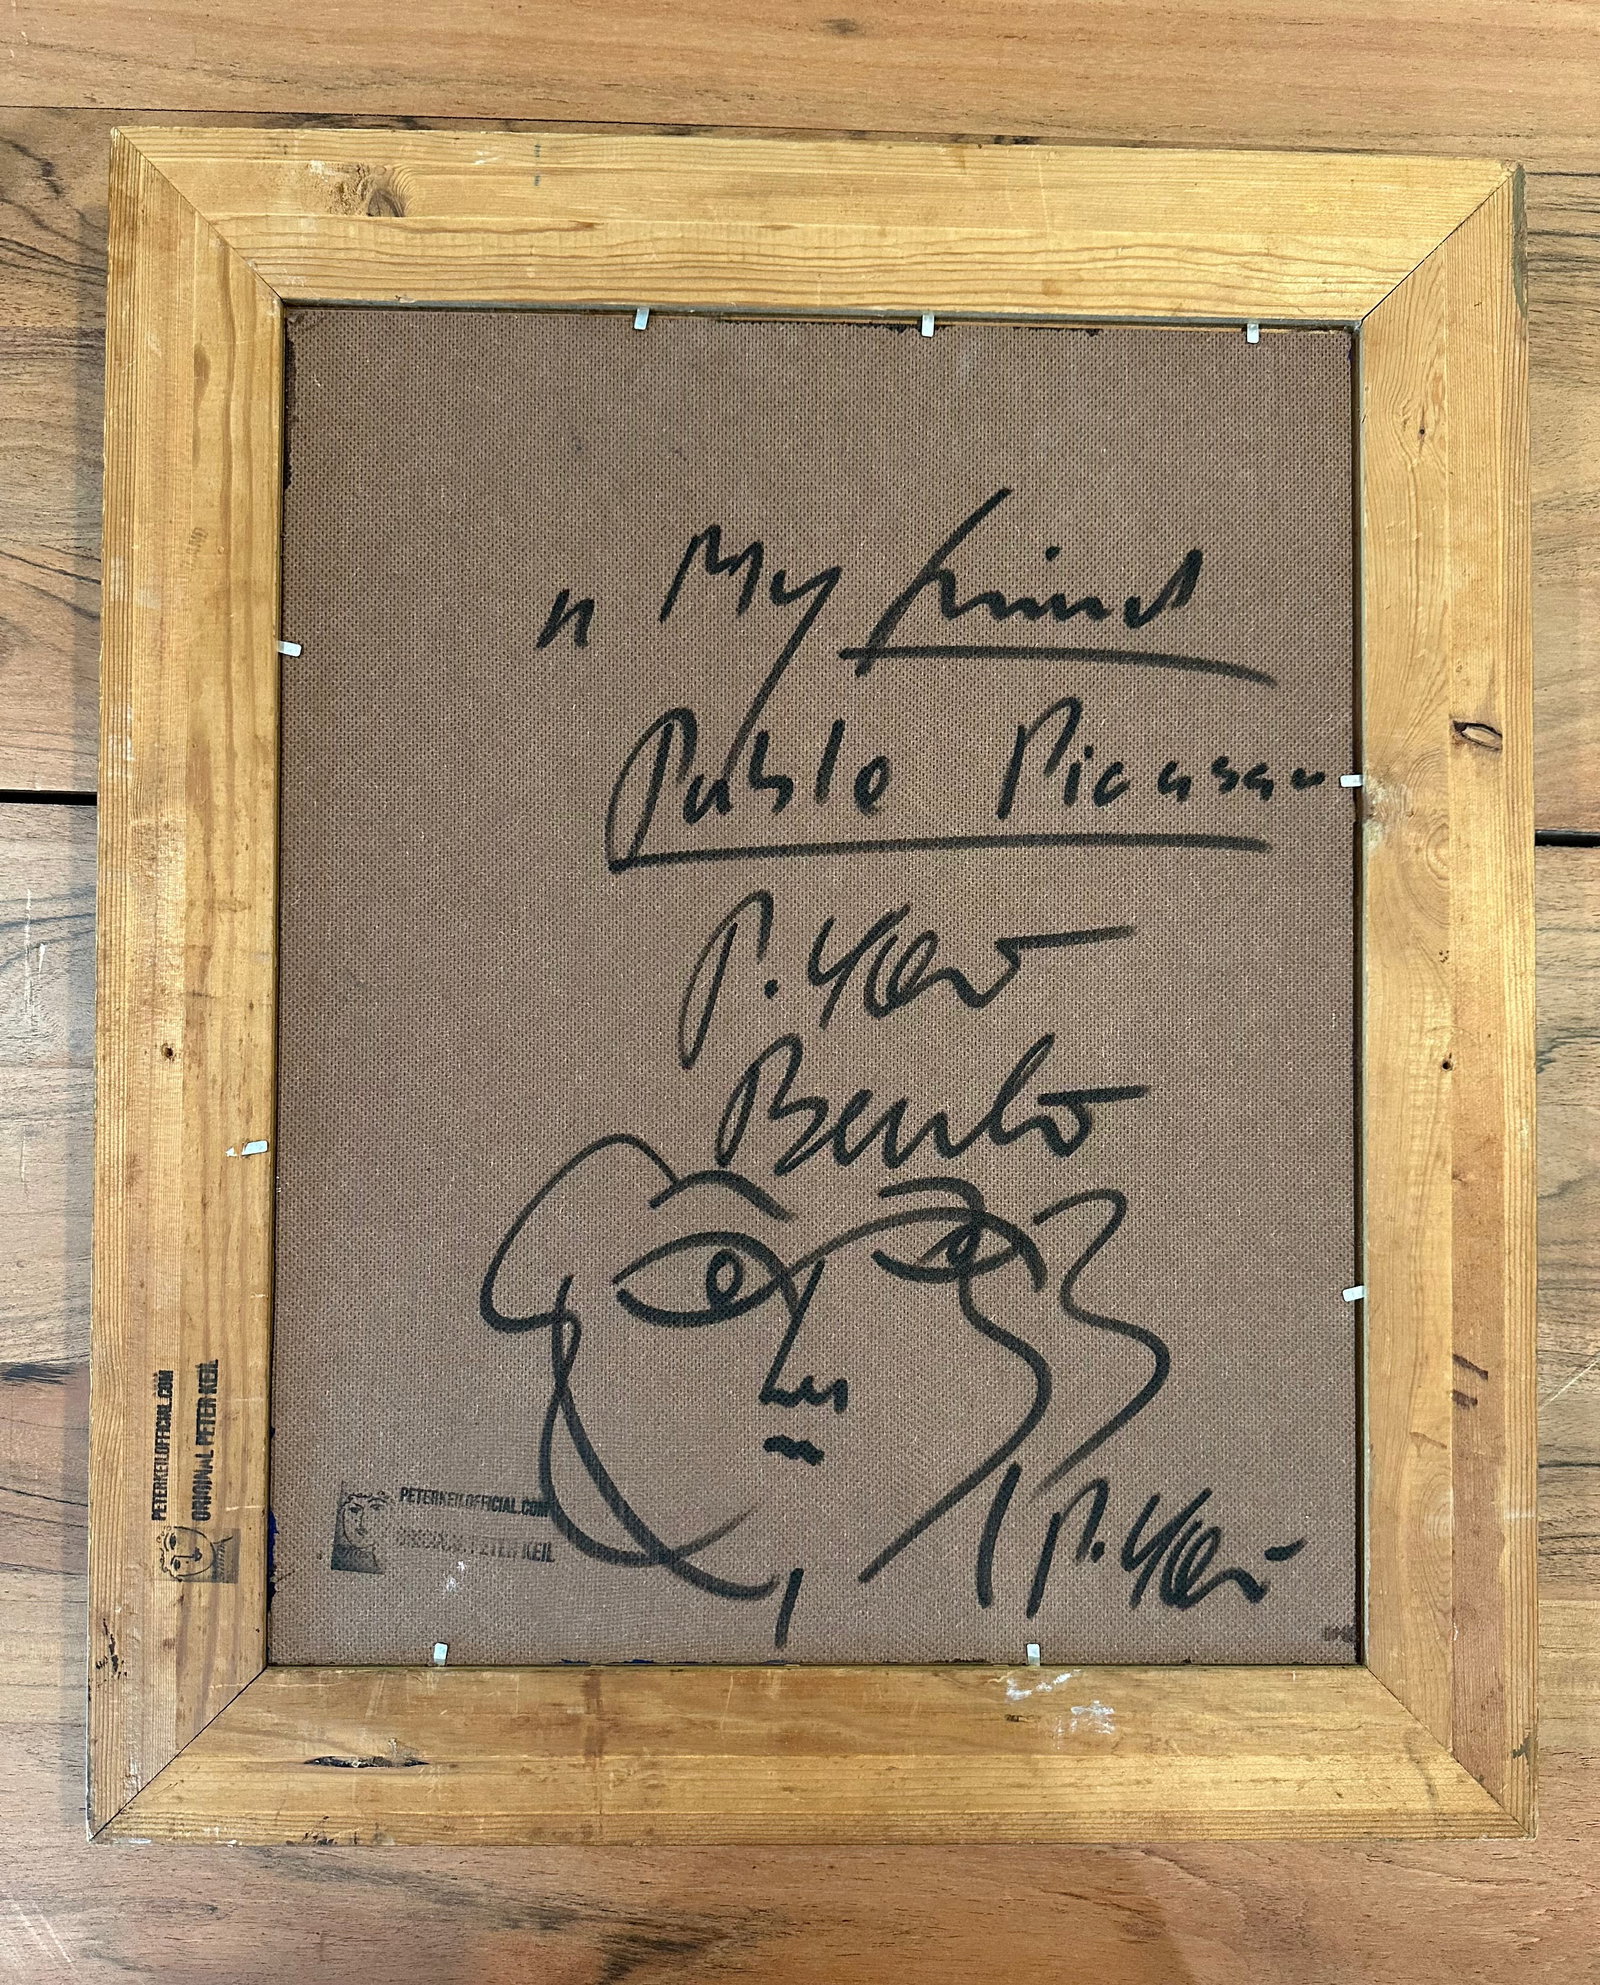 " My friend
Pablo Picasso
P. Keil
Berlin
P. Keil
PETERKEILOFFICIAL.COM
ORIGINAL PETER KEIL
PETERKEILOFFICIAL.COM
ORIGINAL PETER KEIL